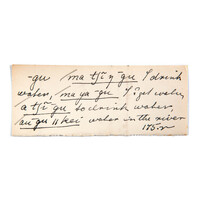 -gu / ma tʃi ŋ-gu I drink
water, / ma ya-gu I get water,
a tʃi-gu to drink water,
au-gu // kei water in the river
175.v